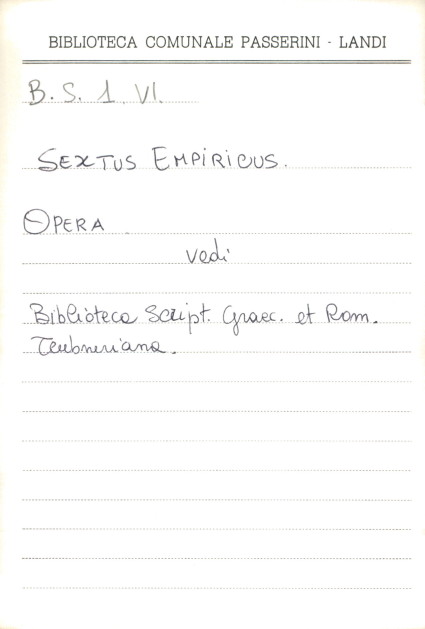 BIBLIOTECA COMUNALE PASSERINI - LANDI
B. S. 1. VI.
SEXTUS EMPIRICUS.
OPERA.
vedi
Biblioteca Script. Graec. et Rom.
Teubneriana.